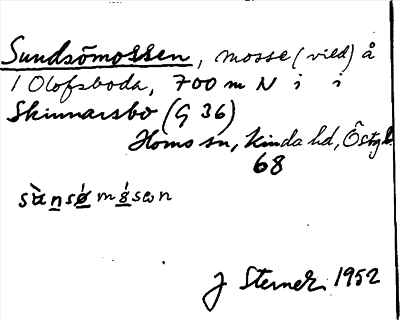 Sundsömossen, mosse (vild) å
1 Olofsboda, 700 m N i i
Skinnarsbo (G 36)
Horns sn, Kinda hd, Östg l.
68
sùnsǿmǿsɷn
J Sterner 1952